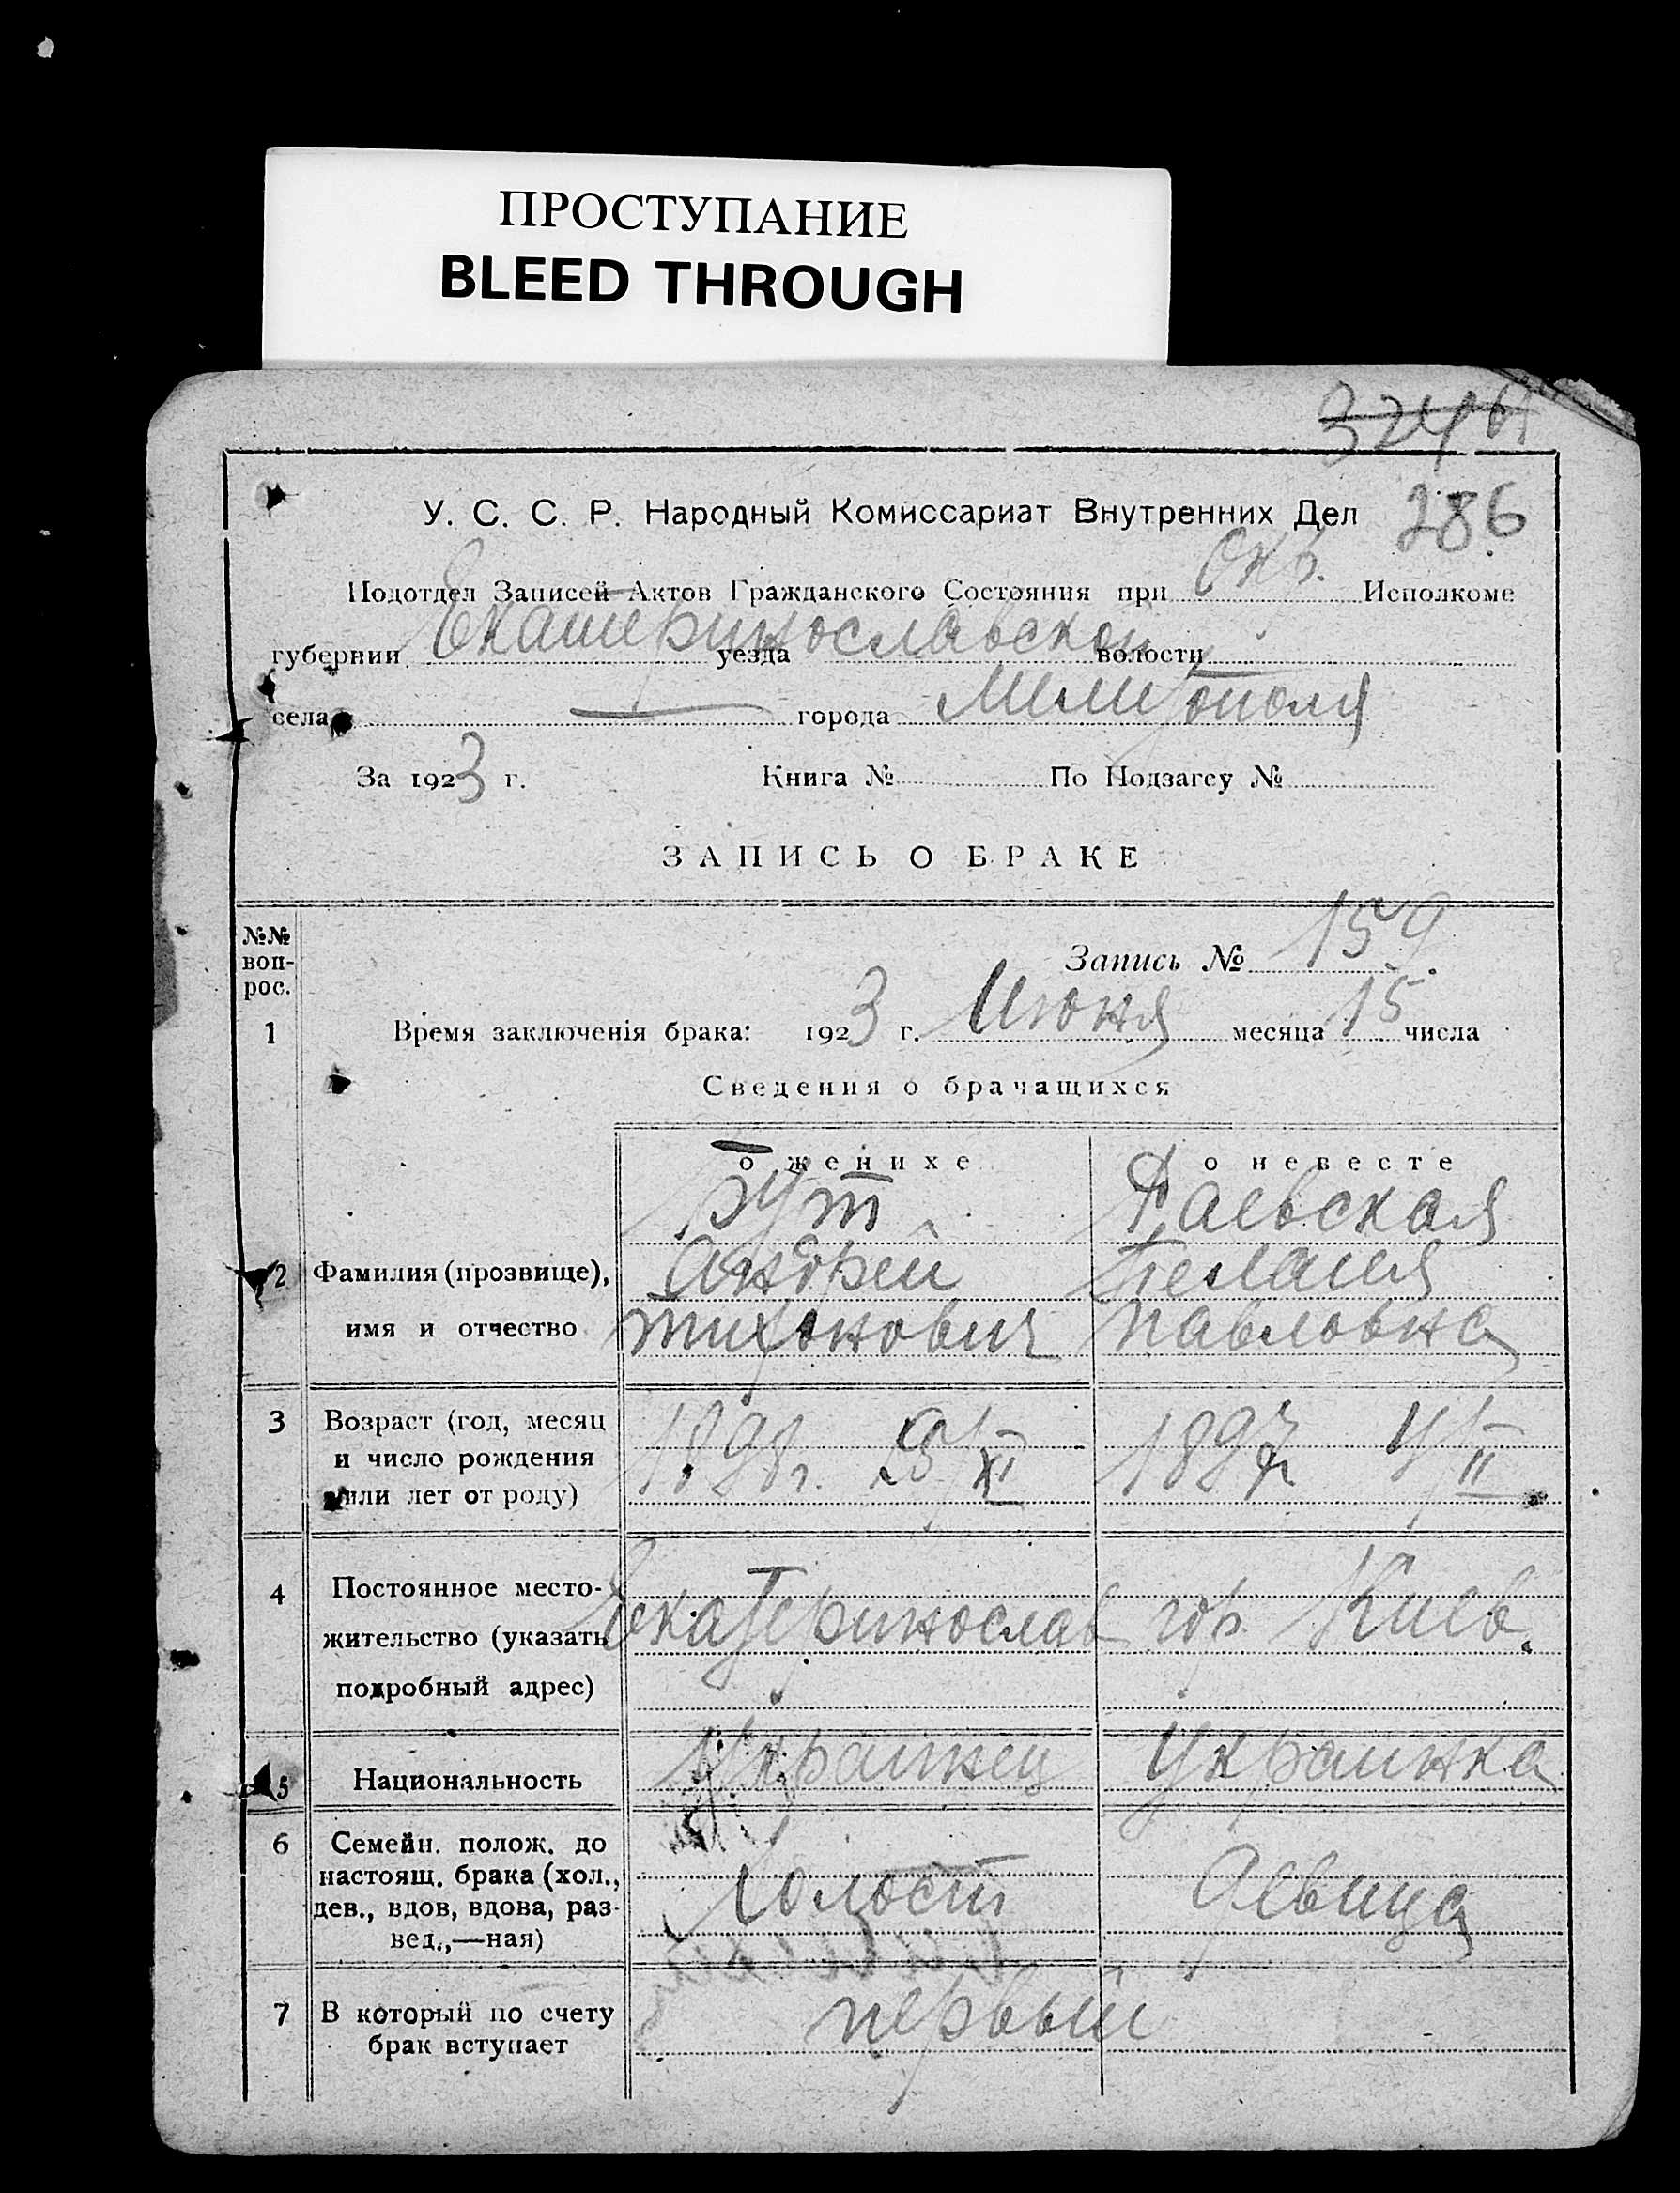 ПРОСТУПАНИЕ
BLEED THROUGH
286
У. С. С. Р. Народный Комиссариат Внутренних Дел
Подотдел Записей Актов Гражданского Состояния при Окр. Исполкоме
губернии Екатеринославской уезда волости
села — города Мелитополя
За 1923 г. Книга № По Подзагсу №
ЗАПИСЬ О БРАКЕ
№№ воп-рос.
Запись № 159
1 Время заключенія брака: 1923 г. Июня месяца 15 числа
Сведения о брачащихся
о женихе о невесте
Бут Раевская
2 Фамилия (прозвище), Андрей Пелагея
имя и отчество Тихонович Павловна
3 Возраст (год, месяц
и число рождения 1898г. XI 1897 II
или лет от роду)
4 Постоянное место-
жительство (указать Екатеринослав гор. Киев.
подробный адрес)
5 Национальность Украинец Украинка
6 Семейн. полож. до
настоящ. брака (хол., Холост Девица
дев., вдов, вдова, раз-
вед.,—ная)
7 В который по счету первый
брак вступает